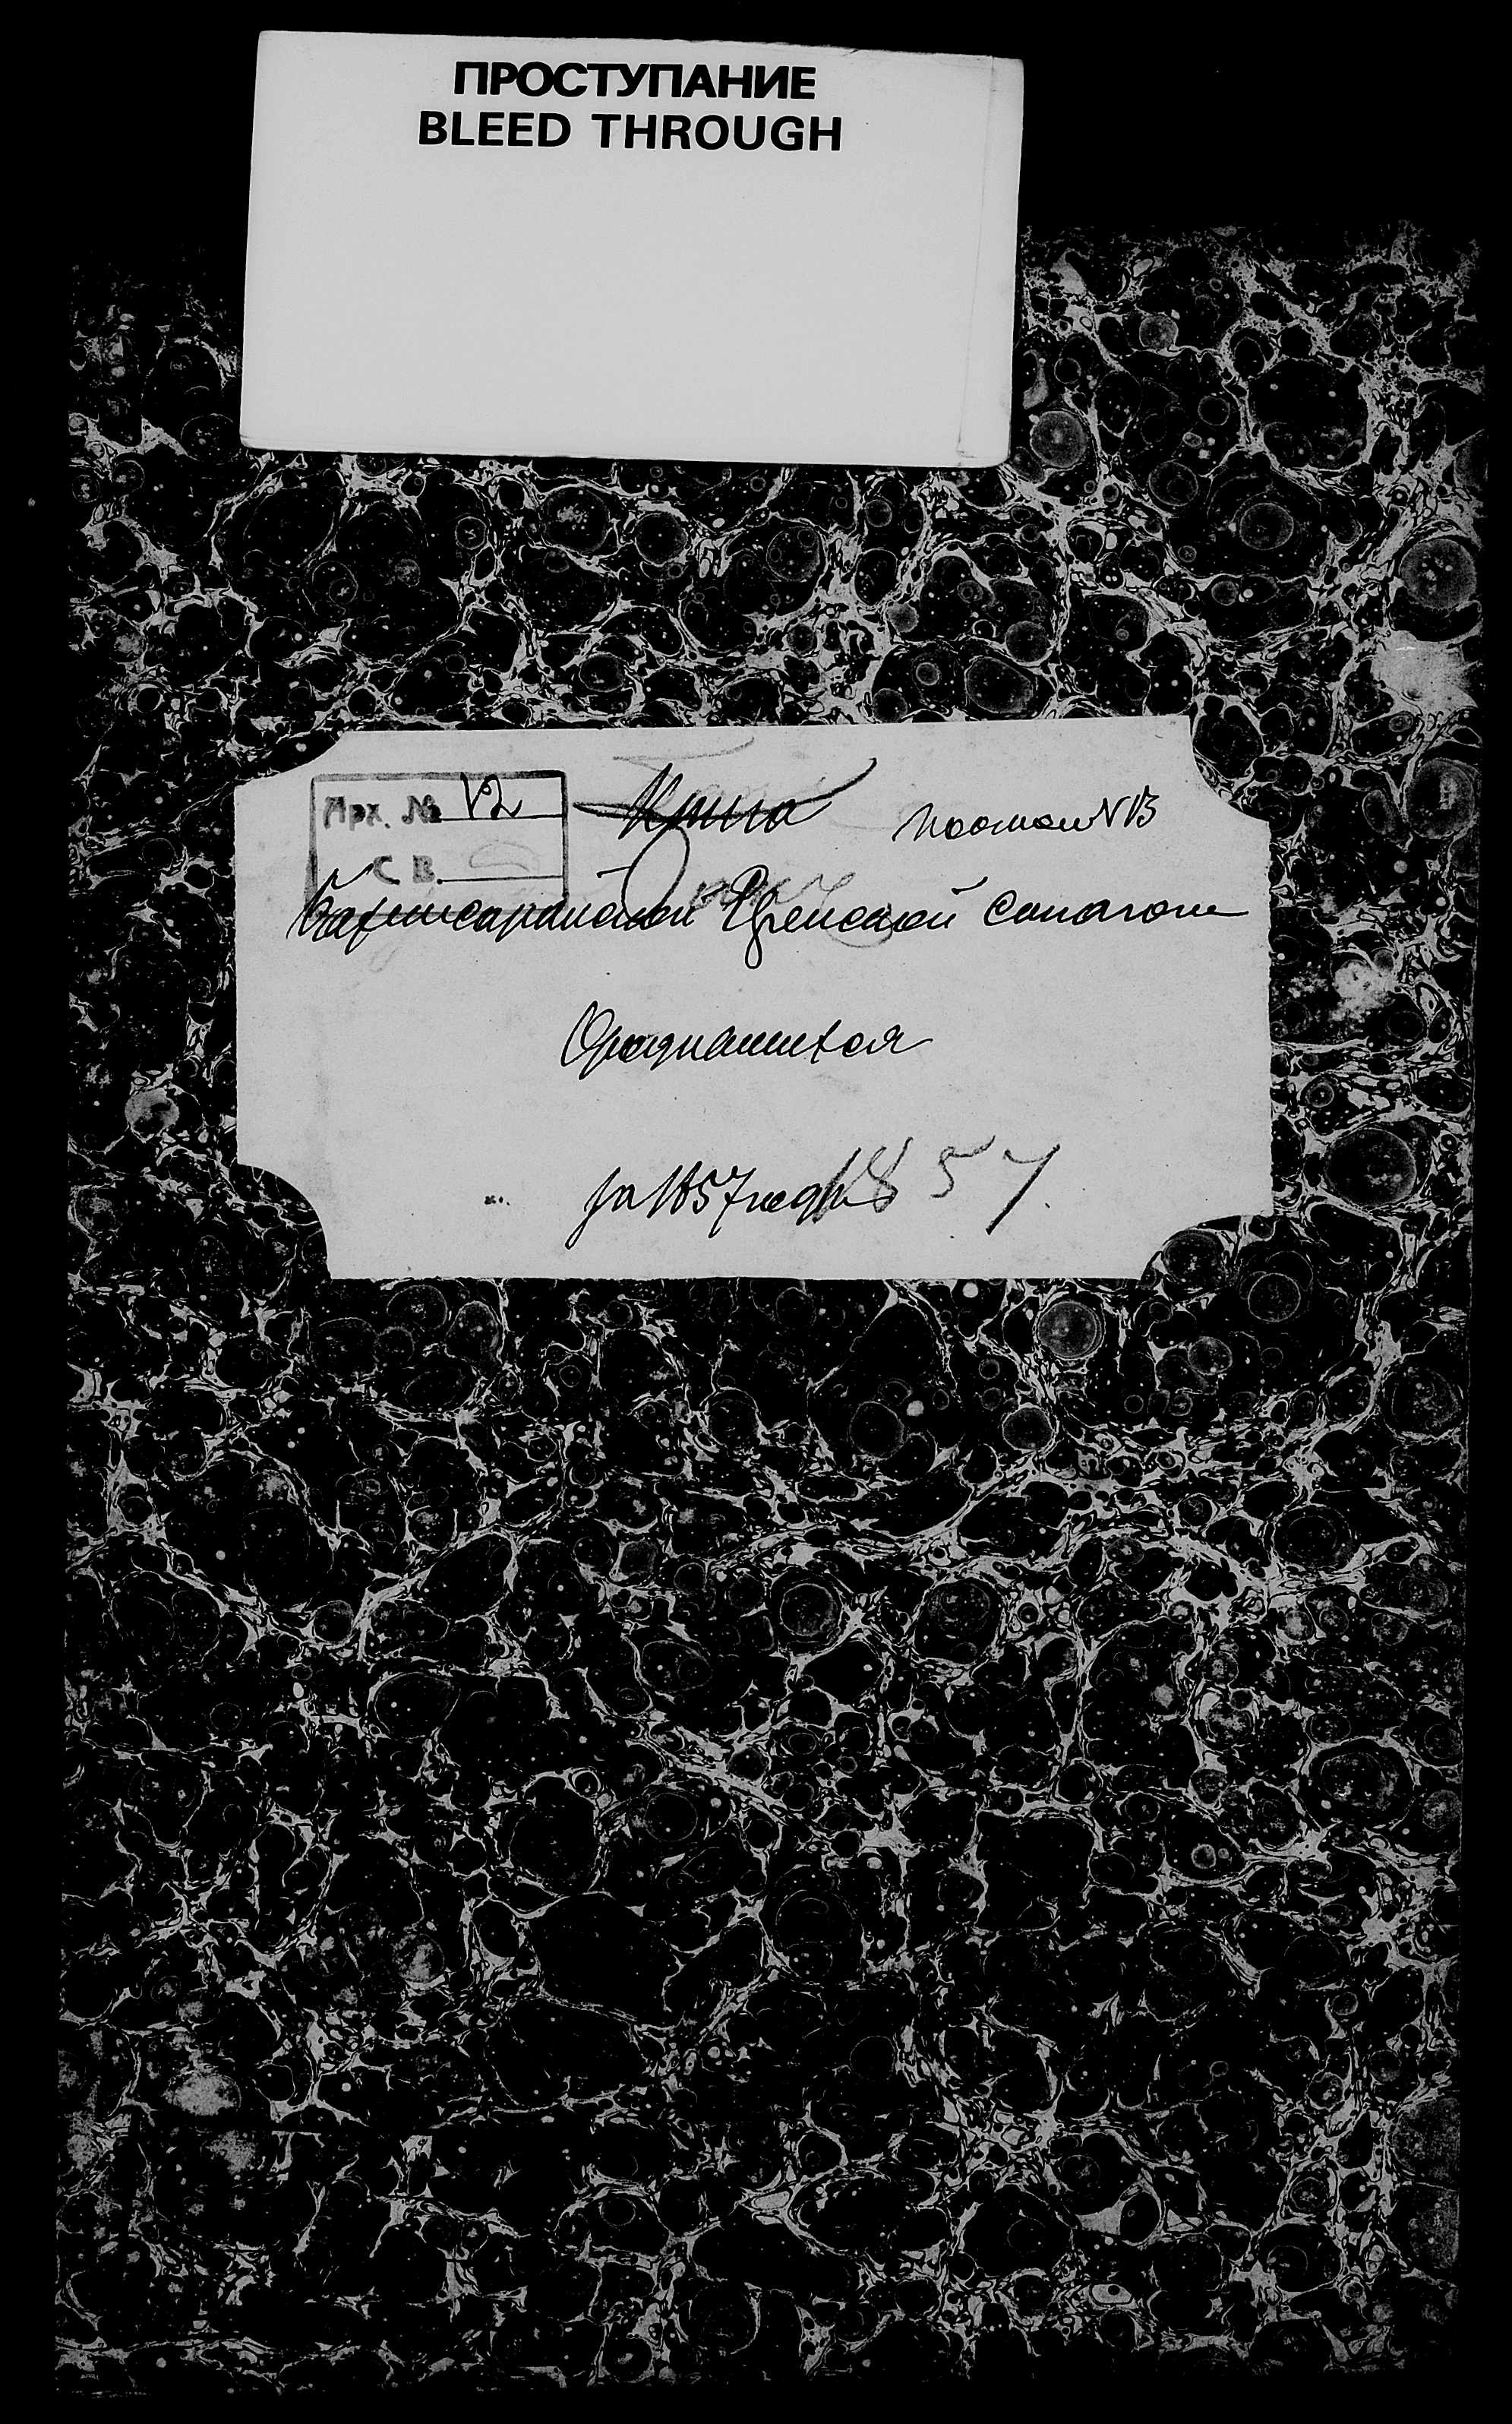 ПРОСТУПАНИЕ
BLEED THROUGH
Арх. № 12
Книга
С В.
Бахчисарайской Еврейской Синагоги
за 1857 годъ 1857.